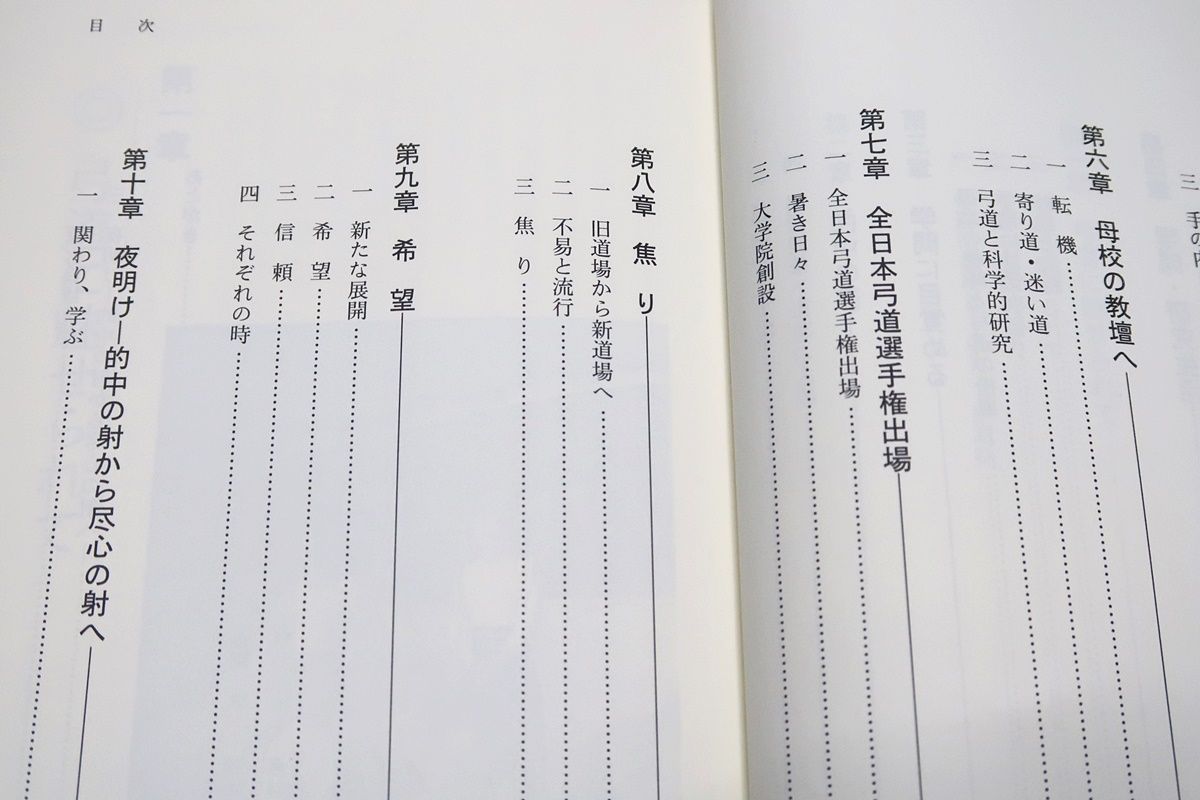 三 手の内
第六章 母校の教壇へ
一 転機
二 寄り道・迷い道
三 弓道と科学的研究
第七章 全日本弓道選手権出場
一 全日本弓道選手権出場
二 暑き日々
三 大学院創設
目次
第八章 焦り
一 旧道場から新道場へ
二 不易と流行
三 焦り
第九章 希望
一 新たな展開
二 希望
三 信頼
四 それぞれの時
第十章 夜明け―的中の射から尽心の射へ
一 関わり、学ぶ